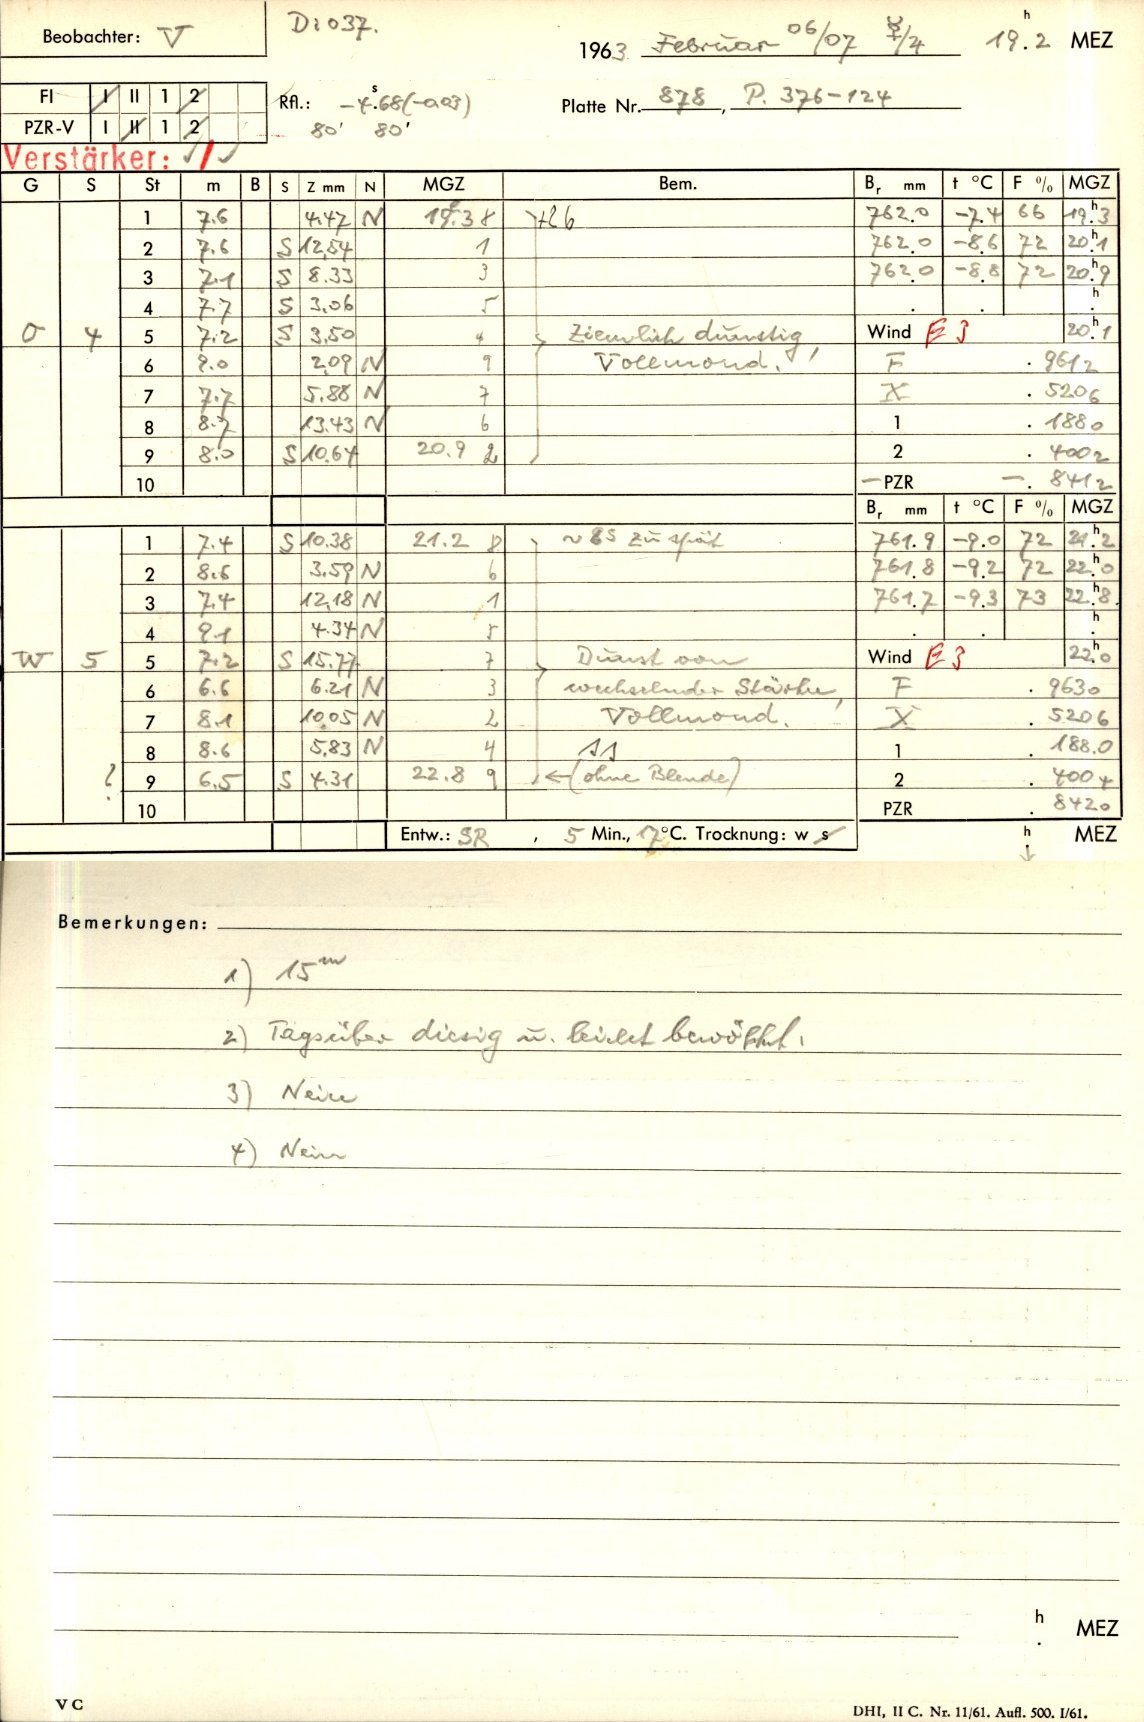 Beobachter: V
D: 037.
1963 Februar 06/07 ☿/4 19.2 h MEZ
FI I II 1 2
Rfl.: -4.68 s (-0.03)
Platte Nr. 878, P. 376-124
PZR-V I II 1 2
80' 80'
Verstärker: I
G S St m B S Z mm N MGZ Bem. Br mm t °C F % MGZ
1 7.6 4.47 N 19.3 8 762.0 -7.4 66 19.3 h
2 7.6 S 12,54 1 762.0 -8.6 72 20.1 h
3 7.1 S 8.33 3 762.0 -8.8 72 20.9 h
4 7.7 S 3,06 5 . . h .
O 4 5 7.2 S 3,50 4 Ziemlich dunstig, Wind E 3 20.1 h
6 9.0 2,09 N 9 Vollmond. F . 9612
7 7.7 5.88 N 7 X . 5206
8 8.7 13.43 N 6 1 . 1880
9 8.0 S 10.64 20.9 2 2 . 4002
10 - PZR -. 8412
Br mm t °C F % MGZ
1 7.4 S 10.38 21.2 8 ~ 8s zu spät 761.9 -9.0 72 21.2 h
2 8.6 3.59 N 6 761.8 -9.2 72 22.0 h
3 7.4 12,18 N 1 761.7 -9.3 73 22.8 h
4 9.1 4.34 N 5 . . h .
W 5 5 7.2 S 15.77 7 Dunst von Wind E 3 22.0 h
6 6.6 6.21 N 3 wechselnder Stärke, F . 9630
7 8.1 10.05 N 2 Vollmond. X . 5206
8 8.6 5,83 N 4 11 1 . 188.0
? 9 6,5 S 4.31 22.8 9 ←(ohne Blende) 2 . 4004
10 PZR . 8420
Entw.: SR , 5 Min., 17 °C. Trocknung: w s h . MEZ
Bemerkungen:
1) 15 m
2) Tagsüber diesig u. leicht bewölkt.
3) Nein
4) Nein
h . MEZ
V C
DHI, II C. Nr. 11/61. Aufl. 500. I/61.